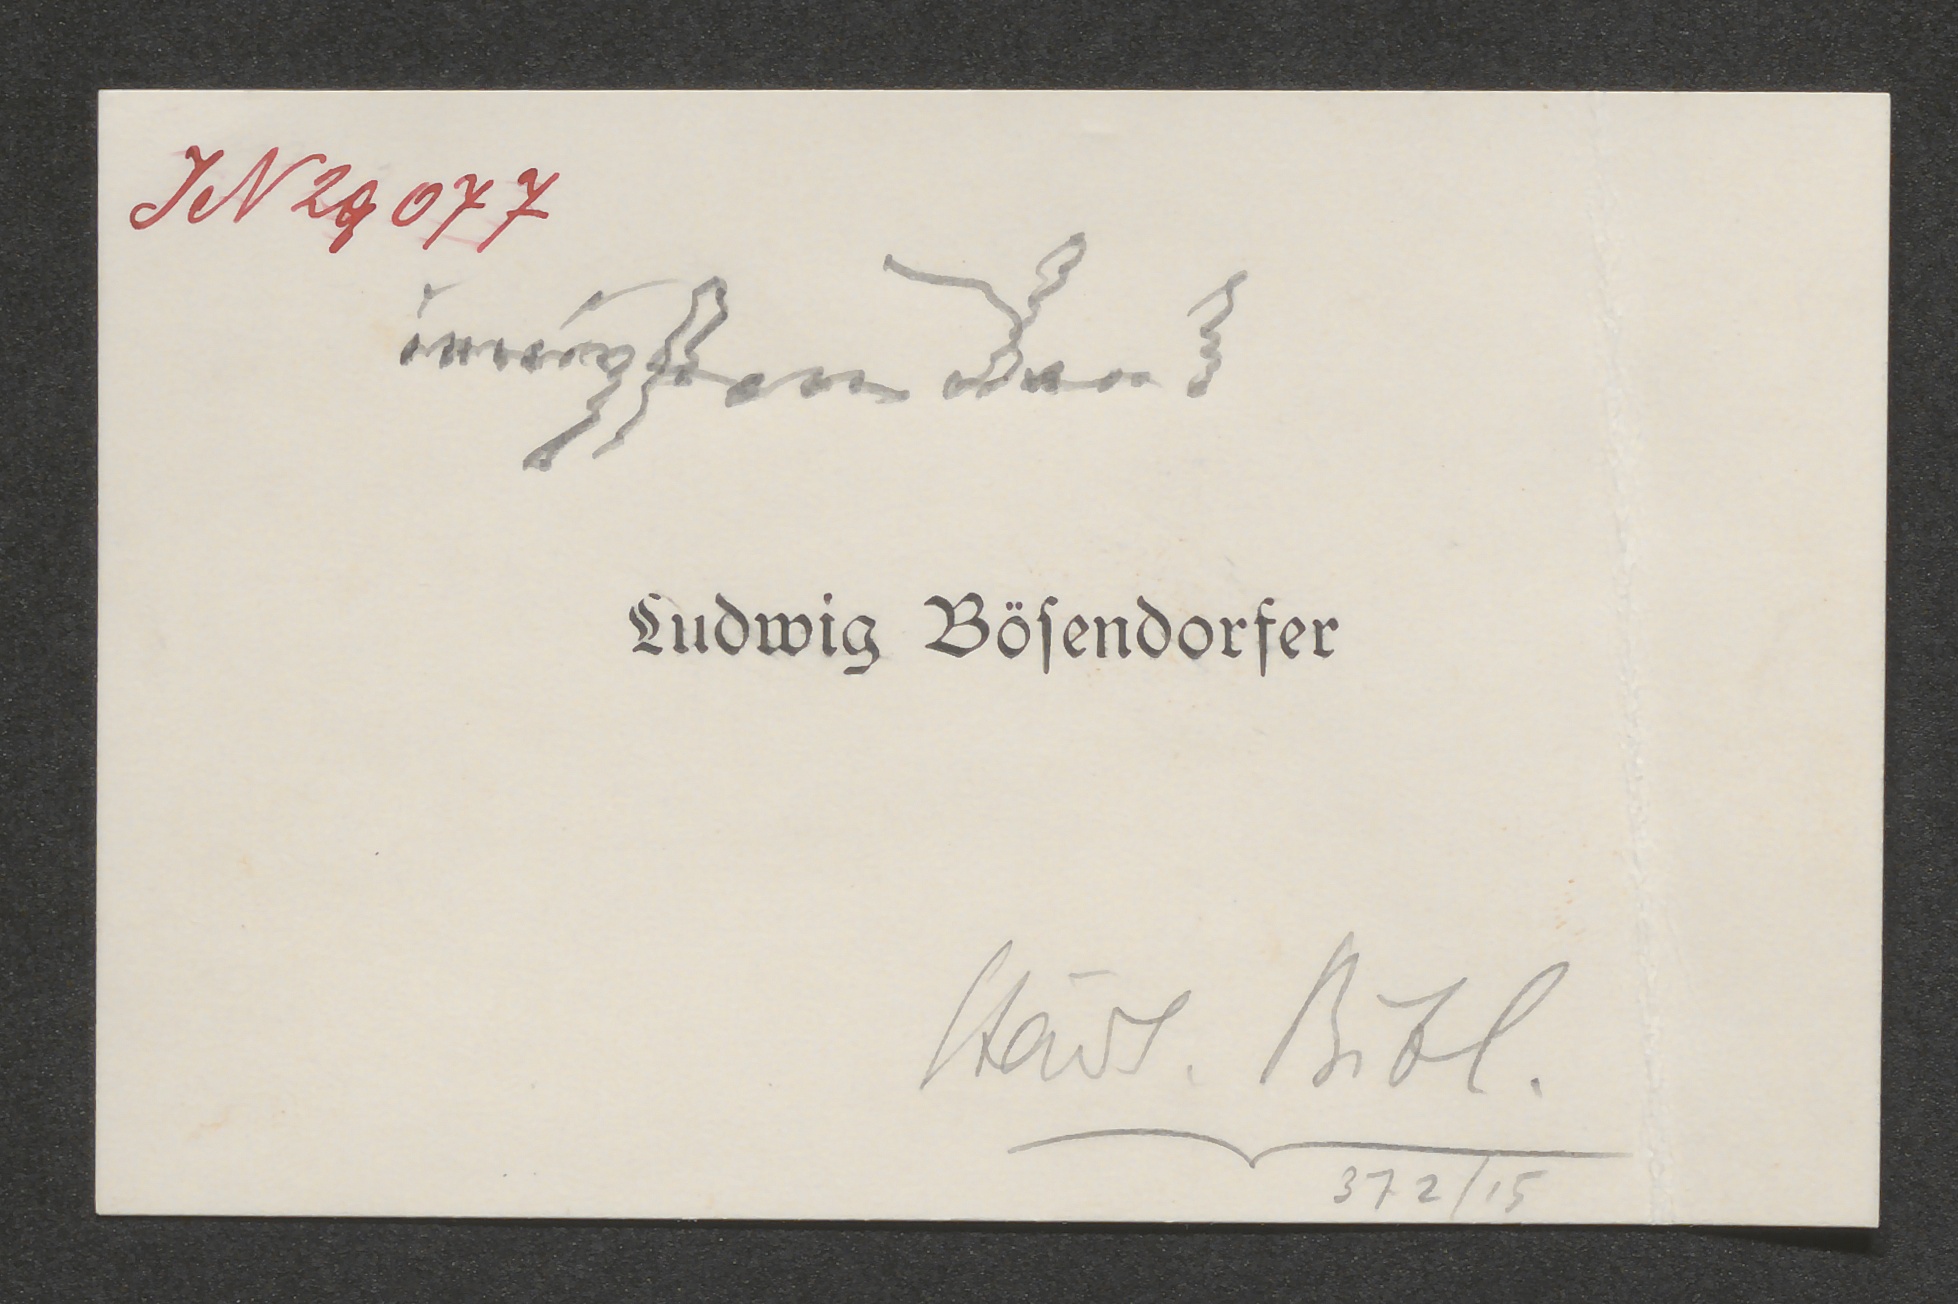 IN 29077
innigsten Dank
Ludwig Bösendorfer
Städt. Bibl.
372/15